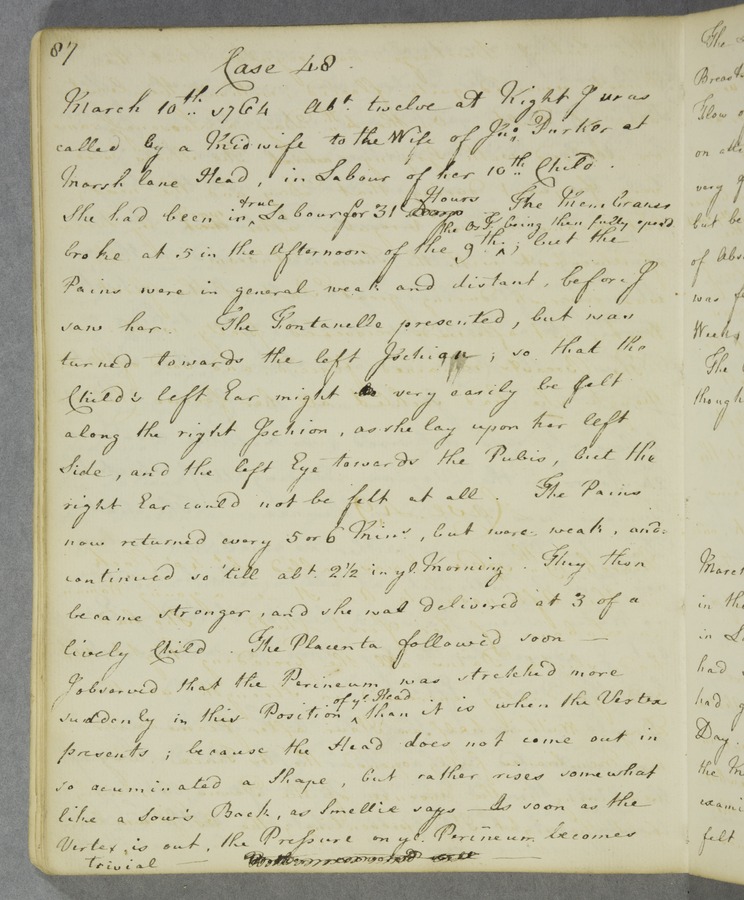 87
Case 48.
March 10th 1764 Abt. twelve at Night I was
called by a Midwife to the Wife of Jno. Durker at
Marsh lane Head, in Labour of her 10th Child.
She had been in true Labour for 31 Hours The Membranes
the Os I. being then fully open'd
broke at 5 in the Afternoon of the 9th; but the
Pains were in general weak and distant, before I
saw her. The Fontanelle presented, but was
turned towards the left Ischion; so that the
Child's left Ear might very easily be felt
along the right Ischion, as she lay upon her left
Side, and the left Eye towards the Pubis, but the
right Ear could not be felt at all. The Pains
now returned every 5 or 6 Mins, but were weak, and
continued so 'till abt. 2½ in ye. Morning. They then
became stronger, and she was delivered at 3 of a
lively Child. The Placenta followed soon —
I observed that the Perineum was stretched more
suddenly in this Position of ye. Head than it is when the Vertex
presents; because the Head does not come out in
so acuminated a Shape, but rather rises somewhat
like a Sow's Back, as Smellie says — As soon as the
Vertex is out, the Pressure on ye. Perineum becomes
trivial —
The
Breast
Flow
on
very
but be
of Abs
was
Weeks
The
though
March
in the
in La
had
had
Day.
the
exami
felt